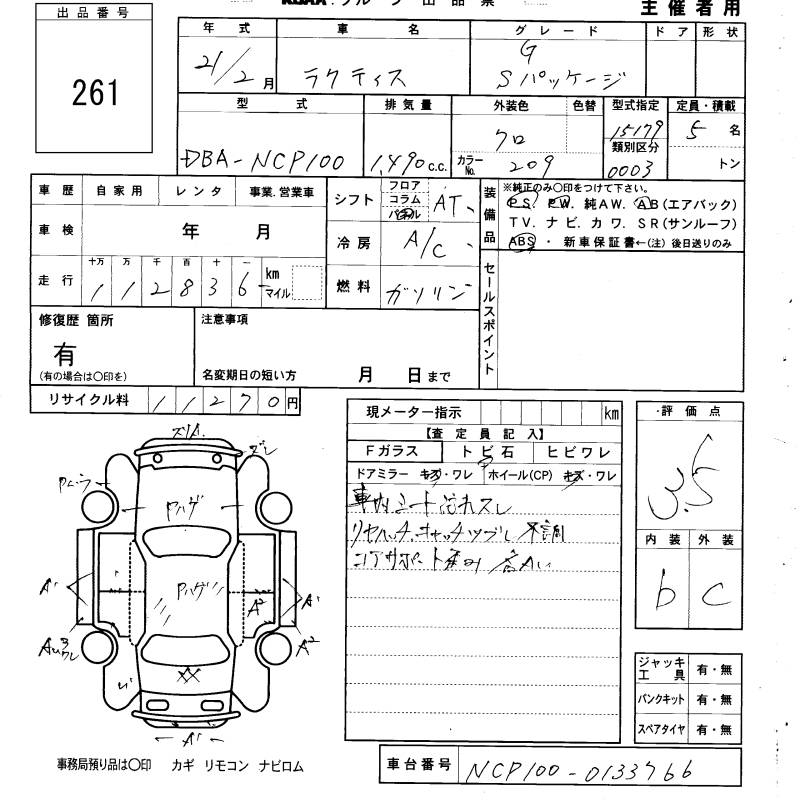 出品番号
主催者用
261
年式 車名 グレード ドア 形状
21/2月 ラクティス G
Sパッケージ
型式 排気量 外装色 色替 型式指定 定員・積載
DBA-NCP100 1490c.c. クロ 15179 5名
カラーNo. 209 類別区分 0003 トン
車歴 自家用 レンタ 事業.営業車
シフト フロア コラム パネル AT
装備品 ※純正のみ〇印をつけて下さい。
PS. PW. 純AW. AB(エアバック)
TV. ナビ. カワ. SR(サンルーフ)
ABS ・ 新車保証書←(注)後日送りのみ
車検 年 月
冷房 A/C
走行 十万 万 千 百 十 一
112836 km マイル
燃料 ガソリン
セールスポイント
修復歴 箇所
有
(有の場合は〇印を)
注意事項
名変期日の短い方 月 日まで
リサイクル料 11270円
現メーター指示 km
【査定員記入】
Fガラス トビ石 ヒビワレ
ドアミラー キズ・ワレ ホイール(CP) キズ・ワレ
車内シート汚れスレ
リヤハッチ.キャッチツブレ 不調
コアサポート
・評価点
3.5
内装 外装
b C
ズレ
Pハゲ
Pハゲ
A'
A²
A'
A²
ワレ
XX
A'
ジャッキ工具 有・無
パンクキット 有・無
スペアタイヤ 有・無
事務局預り品は〇印 カギ リモコン ナビロム
車台番号 NCP100-0133766